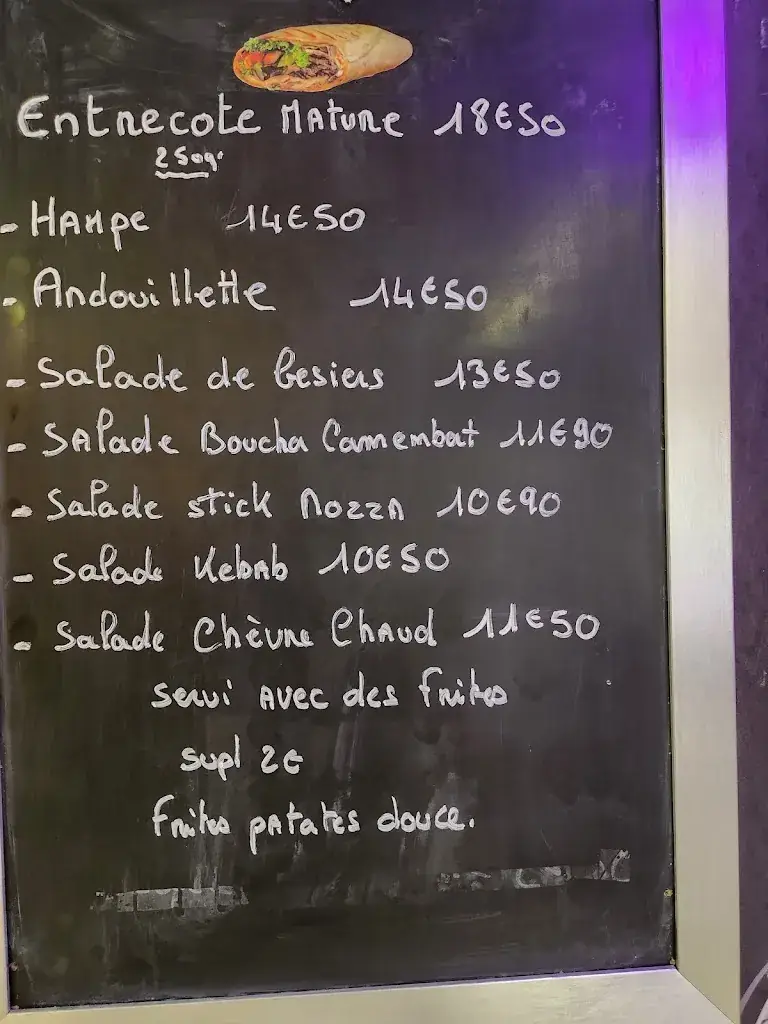 Entrecote Mature 18€50
250gr
- Hampe 14€50
- Andouillette 14€50
- Salade de Gesiers 13€50
- Salade Boucha Camembat 11€90
- Salade stick Mozza 10€90
- Salade Kebab 10€50
- Salade Chèvre Chaud 11€50
servi avec des frites
supl 2€
frites patates douce.